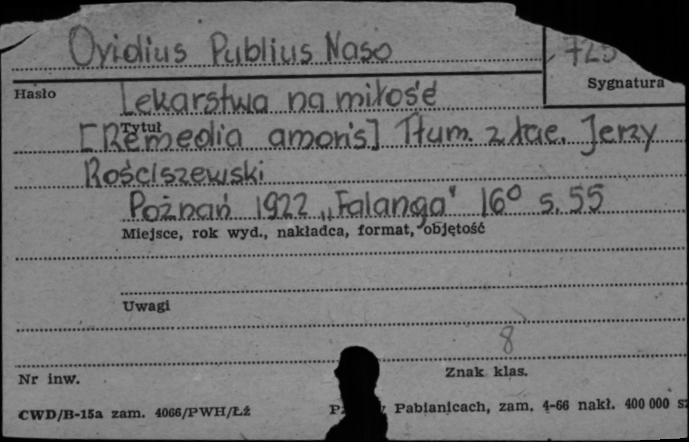 Ovidius Publius Naso
725
Hasło
Sygnatura
Lekarstwa na miłość
Tytuł
[Remedia amoris] Tłum. z łac. Jerzy
Rościszewski
Poznań 1922 „Falanga" 16° s. 55
Miejsce, rok wyd., nakładca, format, objętość
Uwagi
8
Nr inw.
Znak klas.
CWD/B-15a zam. 4066/PWH/Łź
Pabianicach, zam. 4-66 nakł. 400 000